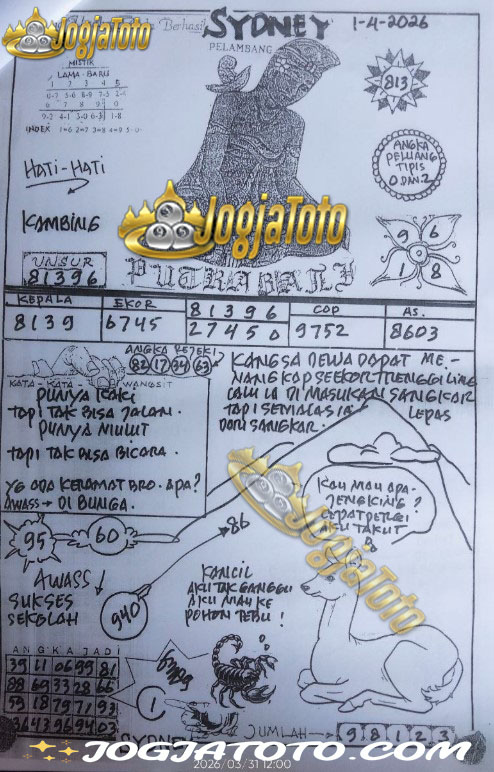 JOGJATOTO
Berhasil
SYDNEY
1-4-2026
PELAMBANG
MISTIK
LAMA - BARU
1 2 3 4 5
6 7 8 9 0
INDEX 1=6 2=7 3=8 4=9 5=0
813
HATI-HATI
ANGKA
PELUANG
TIPIS
0 DAN 2
KAMBING
JOGJATOTO
9 6
1 8
UNSUR
81396
PUTRA BALI
KEPALA
EKOR
81396
COP
AS.
8139
6745
27450
9752
8603
ANGKA REJEKI
82 17 34 63
KATA - KATA WANGSIT
PUNYA KAKI
TAPI TAK BISA JALAN.
PUNYA MULUT
TAPI TAK BISA BICARA.
YG ADA KERAMAT BRO. APA?
AWASS → DI BUNGA.
KANGSA DEWA DAPAT ME-
NANGKAP SEEKOR
LALU IA DI MASUKAN SANGKAR
TAPI LEPAS
DARI SANGKAR.
JOGJATOTO
KAU MAU APA-
JENGKING?
CEPAT PERGI
AKU TAKUT
86
95
60
AWASS
SUKSES
SEKOLAH
940
KANCIL
AKU TAK GANGGU
AKU MAU KE
POHON TEBU!
ANGKA JADI
39 11 06 99 81
88 69 33 28 66
59 18 79 71 93
36 43 96 94 03
1
JUMLAH → 9 8 1 2 3
SYDNEY
JOGJATOTO.COM
2026/03/31 12:00